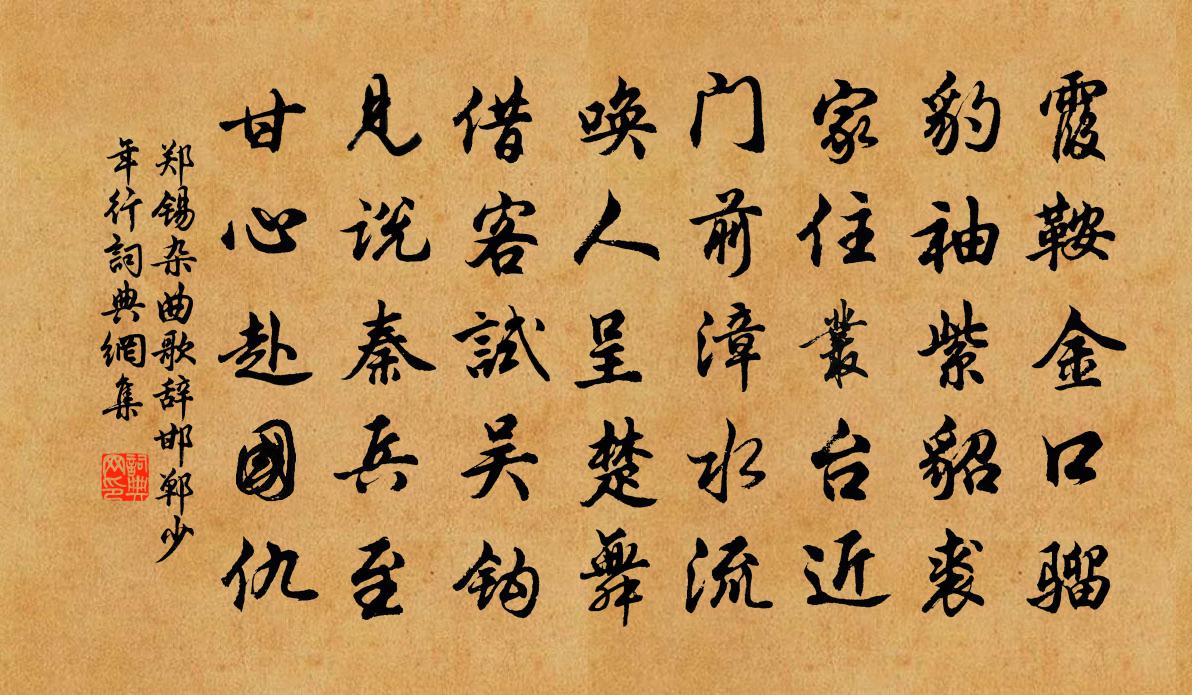 霞鞍金口骝
豹袖紫貂裘
家住叢台近
门前漳水流
唤人呈楚舞
借客試吴钩
見说秦兵至
甘心赴國仇
郑锡杂曲歌辞邯郸少
年行詞典網集
詞典网印